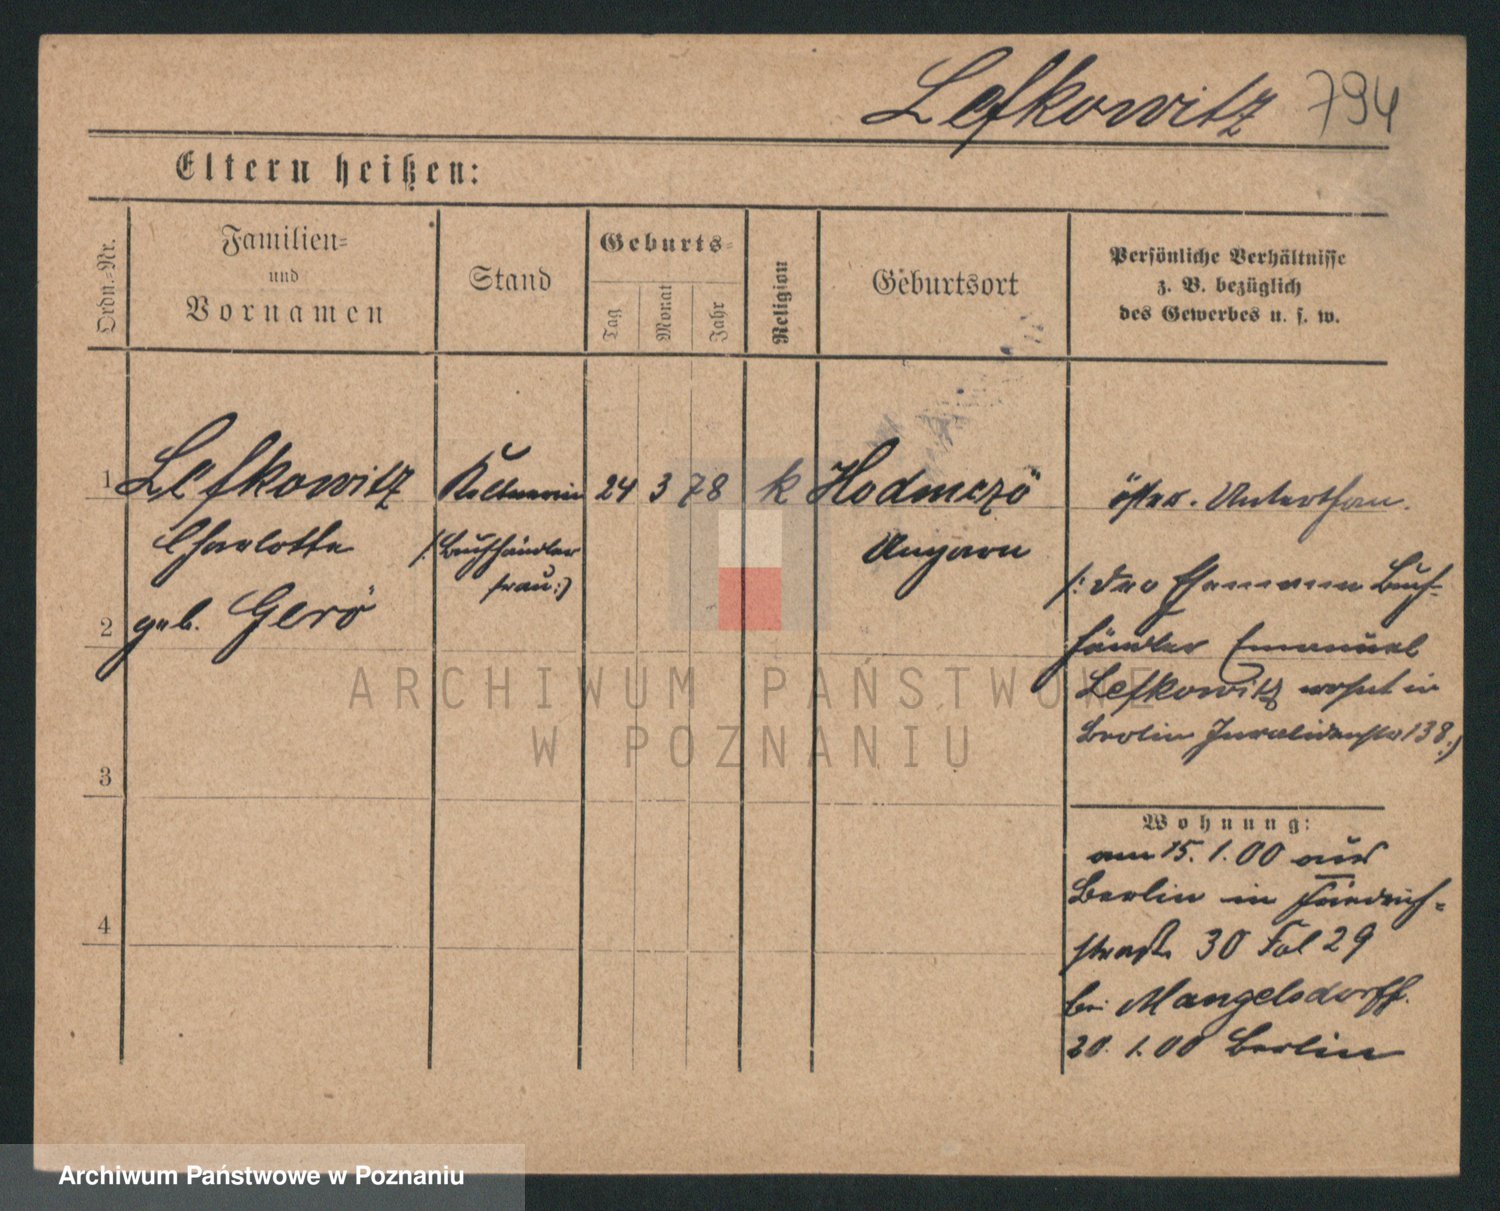 Lefkowitz 794
Eltern heißen:
Ordn.=Nr.
Familien=
und
Vornamen
Stand
Geburts=
Tag
Monat
Jahr
Religion
Geburtsort
Persönliche Verhältnisse
z. B. bezüglich
des Gewerbes u. s. w.
1 Lefkowitz Kellnerin 24 3 78 k Hodmezö österr. Unterthan.
Charlotte /: Buchhändler Ungarn
frau :/
/: der Ehemann Buch-
2 geb. Gerö
händler Emanuel
Lefkowitz wohnt in
Berlin Invalidenstr 138 :/
3
Wohnung:
am 15. 1. 00 aus
Berlin in Friedrich-
4
straße 30 Fol 29
bei Mangelsdorff.
20. 1. 00 Berlin
ARCHIWUM PAŃSTWOWE
W POZNANIU
Archiwum Państwowe w Poznaniu